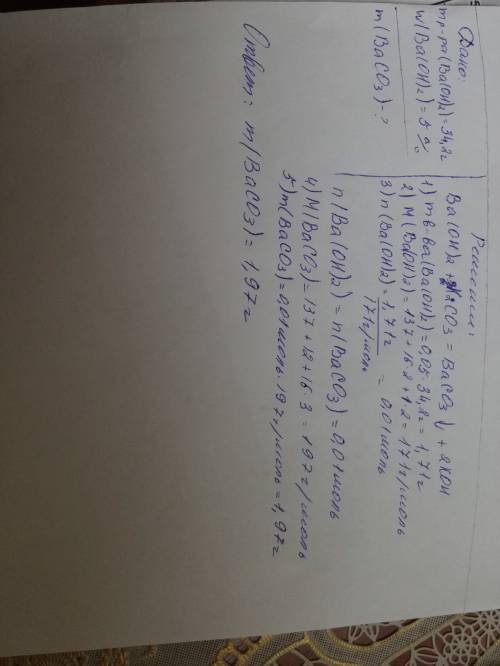 Дано:
mр-ра(Ba(OH)₂) = 34,2г
w(Ba(OH)₂) = 5%
m(BaCO₃) - ?
Решение:
Ba(OH)₂ + CO₃ = BaCO₃↓ + 2KOH
1) mв-ва(Ba(OH)₂) = 0,05·34,2г = 1,71г
2) M(Ba(OH)₂) = 137 + 16·2 + 1·2 = 171г/моль
3) n(Ba(OH)₂) = 1,71г / 171г/моль = 0,01моль
n(Ba(OH)₂) = n(BaCO₃) = 0,01моль
4) M(BaCO₃) = 137 + 12 + 16·3 = 197г/моль
5) m(BaCO₃) = 0,01моль·197г/моль = 1,97г
Ответ: m(BaCO₃) = 1,97г